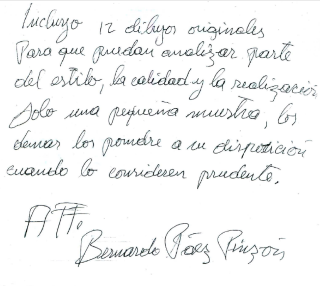 Incluyo 12 dibujos originales
Para que puedan analizar parte
del estilo, la calidad y la realización
solo una pequeña muestra, los
demas los pondre a su disposición
cuando lo consideren prudente.
ATT.
Bernardo Páez Pinzón